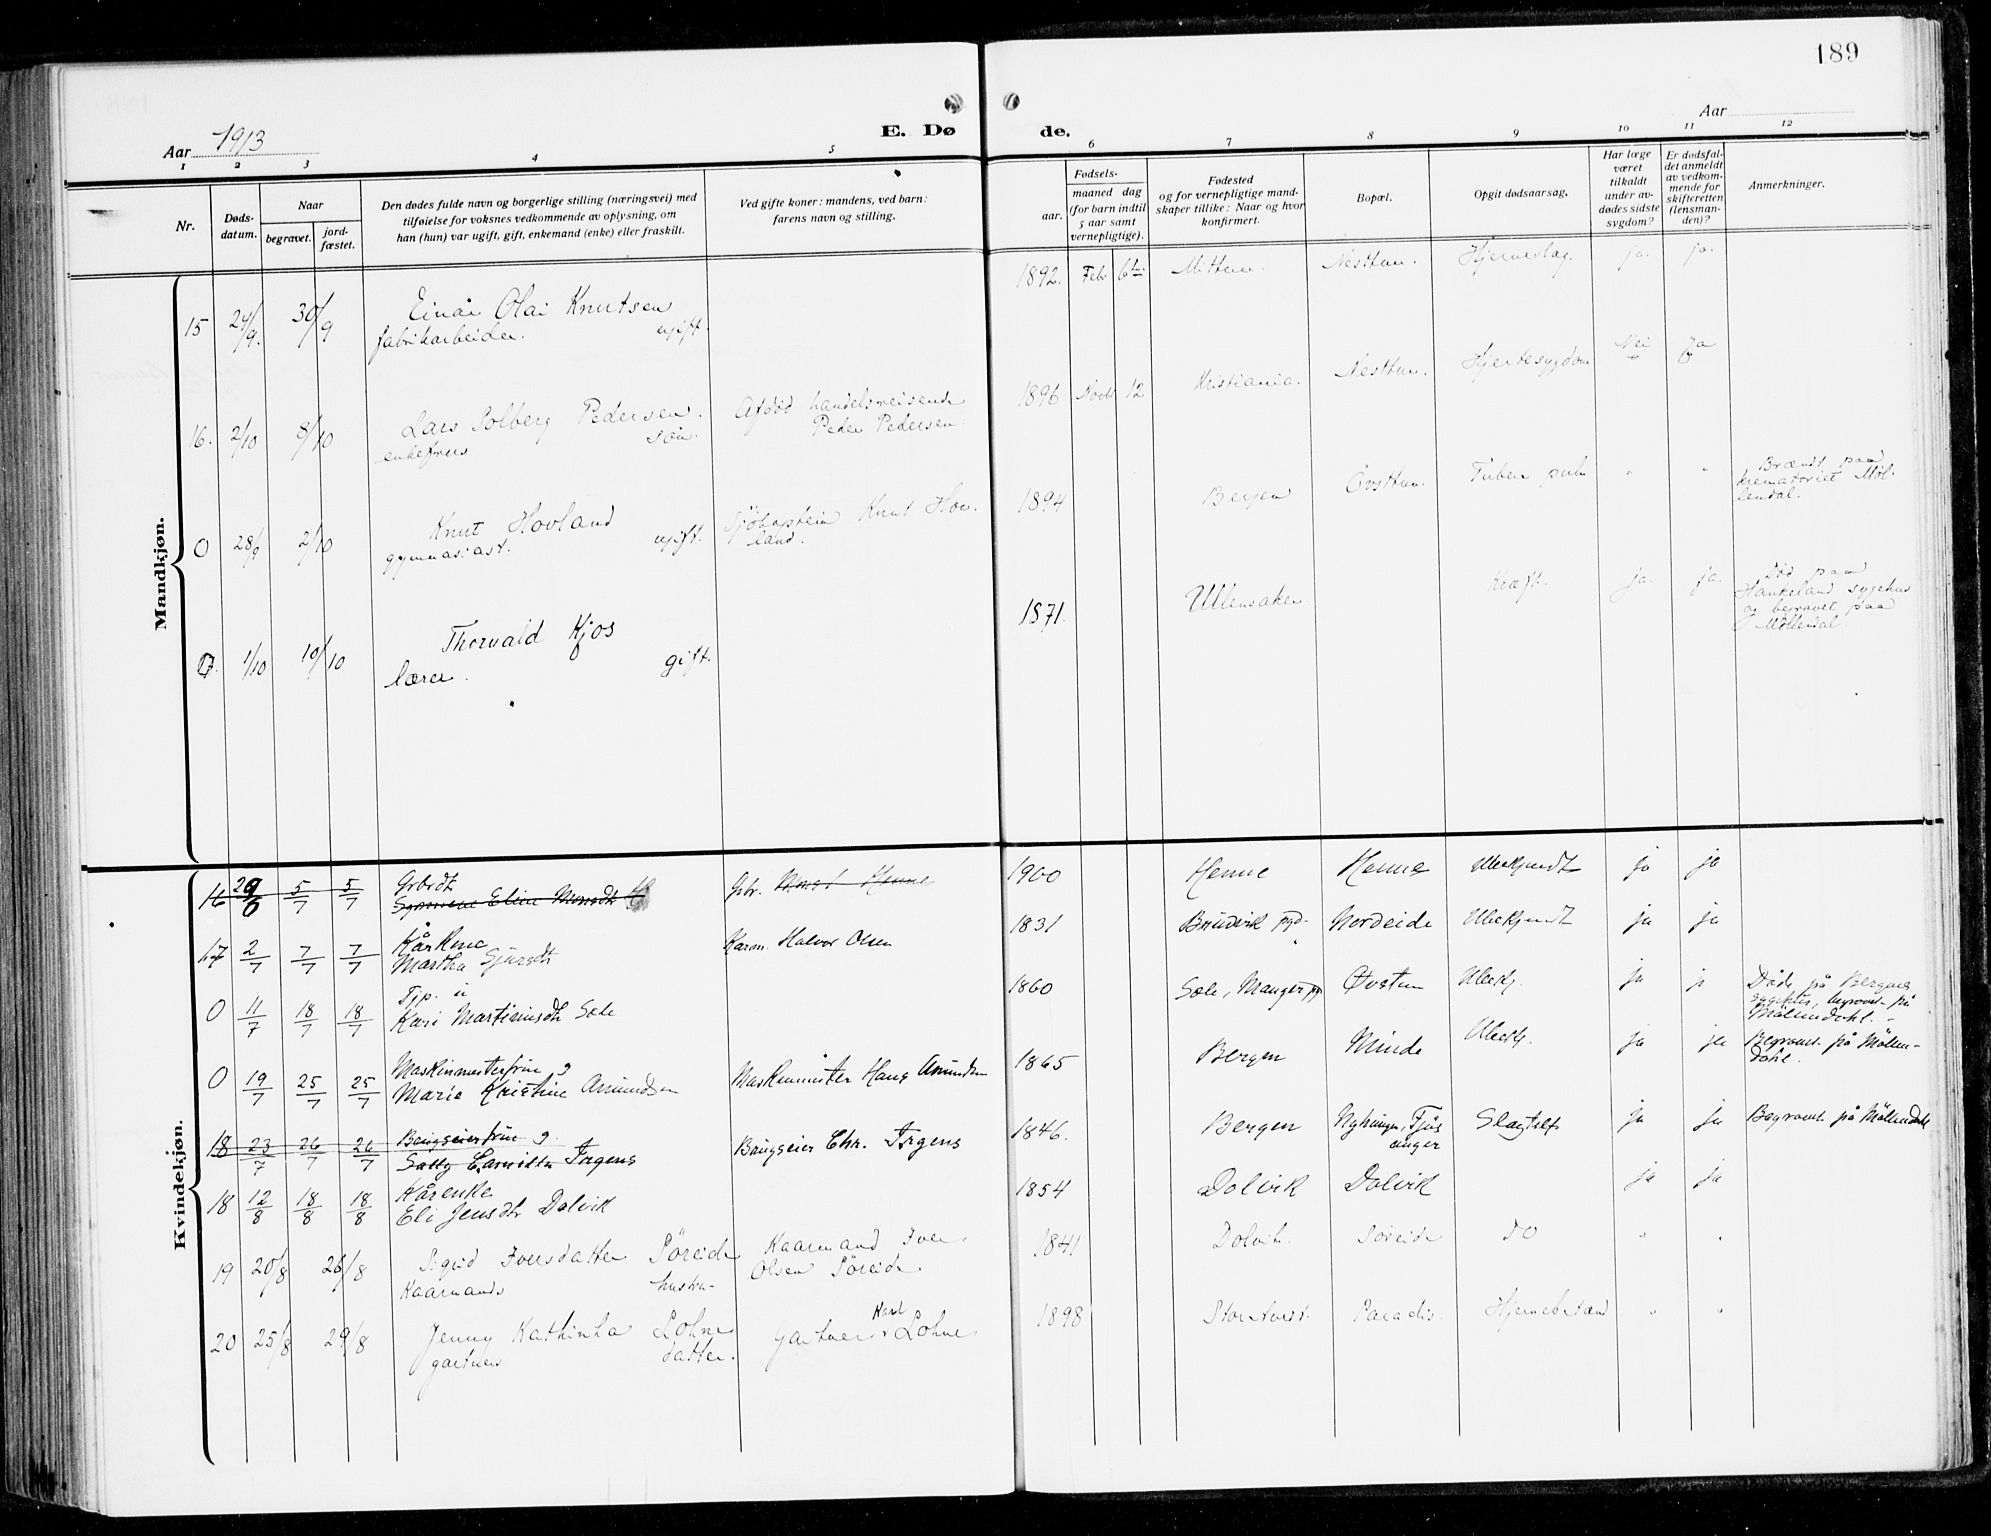 189
Aar 1913
E. Dø de.
Aar
1 2 3 4 5 6 7 8 9 10 11 12
Nr.
Døds-
datum.
Naar
begravet.
jord-
fæstet.
Den dødes fulde navn og borgerlige stilling (næringsvei) med
tilføielse for voksnes vedkommende av oplysning, om
han (hun) var ugift, gift, enkemand (enke) eller fraskilt.
Ved gifte koner: mandens, ved barn:
farens navn og stilling.
Fødsels-
aar.
maaned dag
(for barn indtil
5 aar samt
vernepligtige).
Fødested
og for vernepligtige mand-
skaper tillike: Naar og hvor
konfirmert.
Bopæl.
Opgit dødsaarsag.
Har læge
været
tilkaldt
under av-
dødes sidste
sygdom?
Er dødsfal-
det anmeldt
av vedkom-
mende for
skifteretten
(lensman-
den)?
Anmerkninger.
Mandkjøn.
15 24/9. 30/9 Einar Olai Knutsen 1892. Feb. 6te Mittun. Nesttun. Hjerneslag. ja. ja.
fabrikarbeider. ugift.
16. 2/10 8/10 Lars Solberg Pedersen. Afdød handelsreisende 1896 Novbr 12 Kristiania. Nesttun. Hjertesygdom Nei ja
enkefrues søn. Peder Pedersen
0 28/9 2/10 Knut Hovland Sjökaptein Knut Hov- 1894 Bergen Övsttun. Tuber pulm " " Brændt paa
gymnasiast. ugift. land. krematoriet Möl-
lendal.
0. 1/10 10/10 Thorvald Kjos 1871. Ullensaker Kræft. ja. ja. Död paa
lærer. gift. Haukeland sygehus
og begravet paa
Möllendal.
Kvindekjøn.
16 29/6 5/7 5/7 Grbrdt Gbr. Mons Henne 1900 Henne Henne Ubekjendt ja ja
Elin Monsdt H
17 2/7 7/7 7/7 Kårkone Kaarm. Halvor Olsen 1831 Bruvik pgd. Nordeide Ubekjendt ja ja
Martha Sjursdt
0 11/7 18/7 18/7 Tjp. u 1860 Sæle, Manger pg Øvstun Ubekj. ja ja Døde på Bergens
Kari Martinusdt Sæle sygehus, begravet på
Möllendahl.
0 19/7 25/7 25/7 Maskinmesterfrue g Maskinmester Hans Amundsen 1865 Bergen Minde Ubekj. ja ja Begravet på Möllen-
Marie Kristine Amundsen dahl.
18 23/7 26/7 26/7 Brugseierfrue g. Brugseier Chr. Irgens 1846. Bergen Nyhaugen, Fjøs Slagtilf. ja ja Begravet på Möllendahl
Sally Camilla Irgens anger
18 12/8 18/8 18/8 Kårenke 1854 Dolvik Dolvik ja ja
Eli Jensdtr Dolvik
19 20/8 26/8 Sigrid Iversdatter Söreide Kaarmand Iver 1841 Dolvik Söreide Do " "
Kaarmands hustru Olsen Söreide.
20 25/8 29/8 Jenny Kathinka Lohne gartner Karl Lohne 1898 Paradis Hjernebetænd " "
gartners datter.